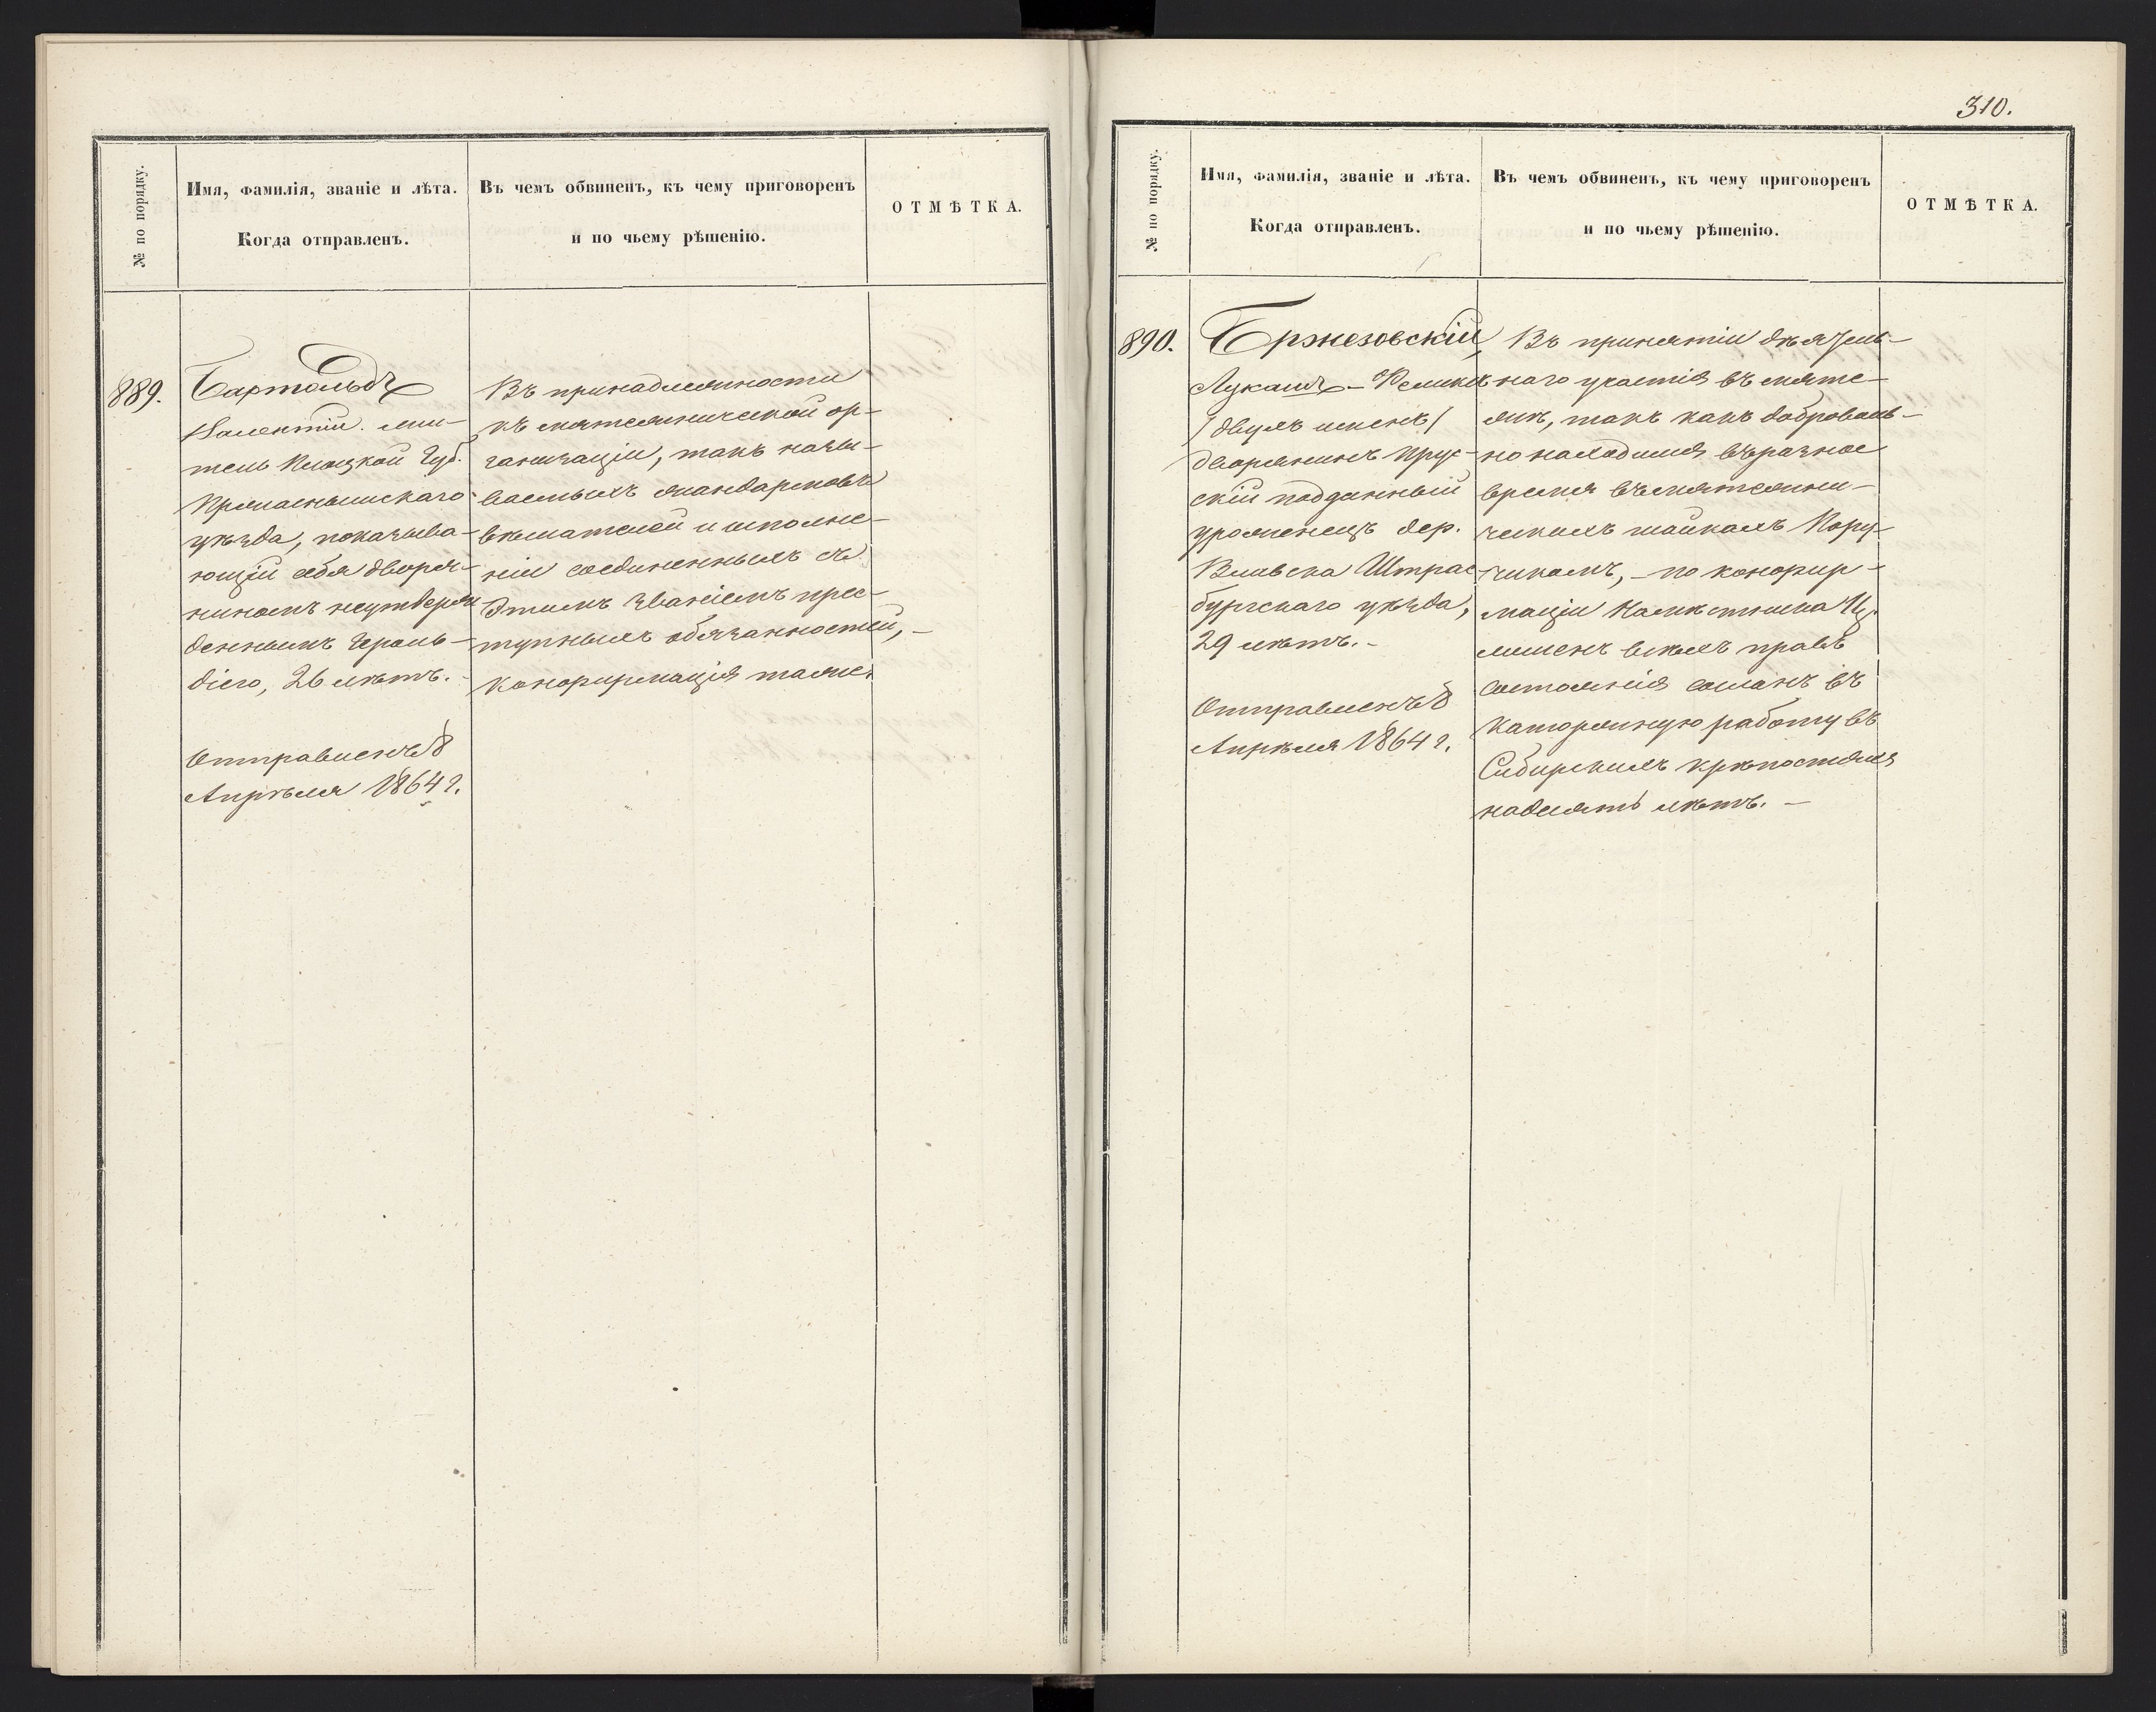 310.
№ по порядку.
Имя, фамилія, званіе и лѣта.
Когда отправленъ.
Въ чемъ обвиненъ, къ чему приговоренъ
и по чьему рѣшенію.
ОТМѢТКА.
889.
Бартольдъ
Валентій. жи-
тель Плоцкой Губ.
Прмаснышскаго
уѣзда, показыва-
ющій себя дворя-
ниномъ неутверж-
деннымъ Героль-
діею, 26 лѣтъ.-
Отправленъ 8
Апрѣля 1864 г.
Въ принадлежности
къ мятежнической ор-
ганизаціи, такъ назы-
ваемыхъ жандармовъ
вѣшателей и исполне-
ніи соединенныхъ съ
этимъ званіемъ прес-
тупныхъ обязанностей,-
конфирмація таже.
№ по порядку.
Имя, фамилія, званіе и лѣта.
Когда отправленъ.
Въ чемъ обвиненъ, къ чему приговоренъ
и по чьему рѣшенію.
ОТМѢТКА.
890.
Бржезовскій,
Лукашъ-Феликсъ
/двухъ именъ/
дворянинъ Прус-
скій подданный
уроженецъ дер.
Штрас-
бургскаго уѣзда,
29 лѣтъ.-
Отправленъ 8
Апрѣля 1864 г.
Въ принятіи дѣятель-
наго участія въ мяте-
жѣ, такъ какъ доброволь-
но находился въ разное
время въ мятежни-
ческихъ шайкахъ Пору-
чикомъ,- по конфир-
маціи Намѣстника Ц.
лишенъ всѣхъ правъ
состоянія сосланъ въ
каторжную работу въ
Сибирскихъ крѣпостяхъ
на девять лѣтъ.-